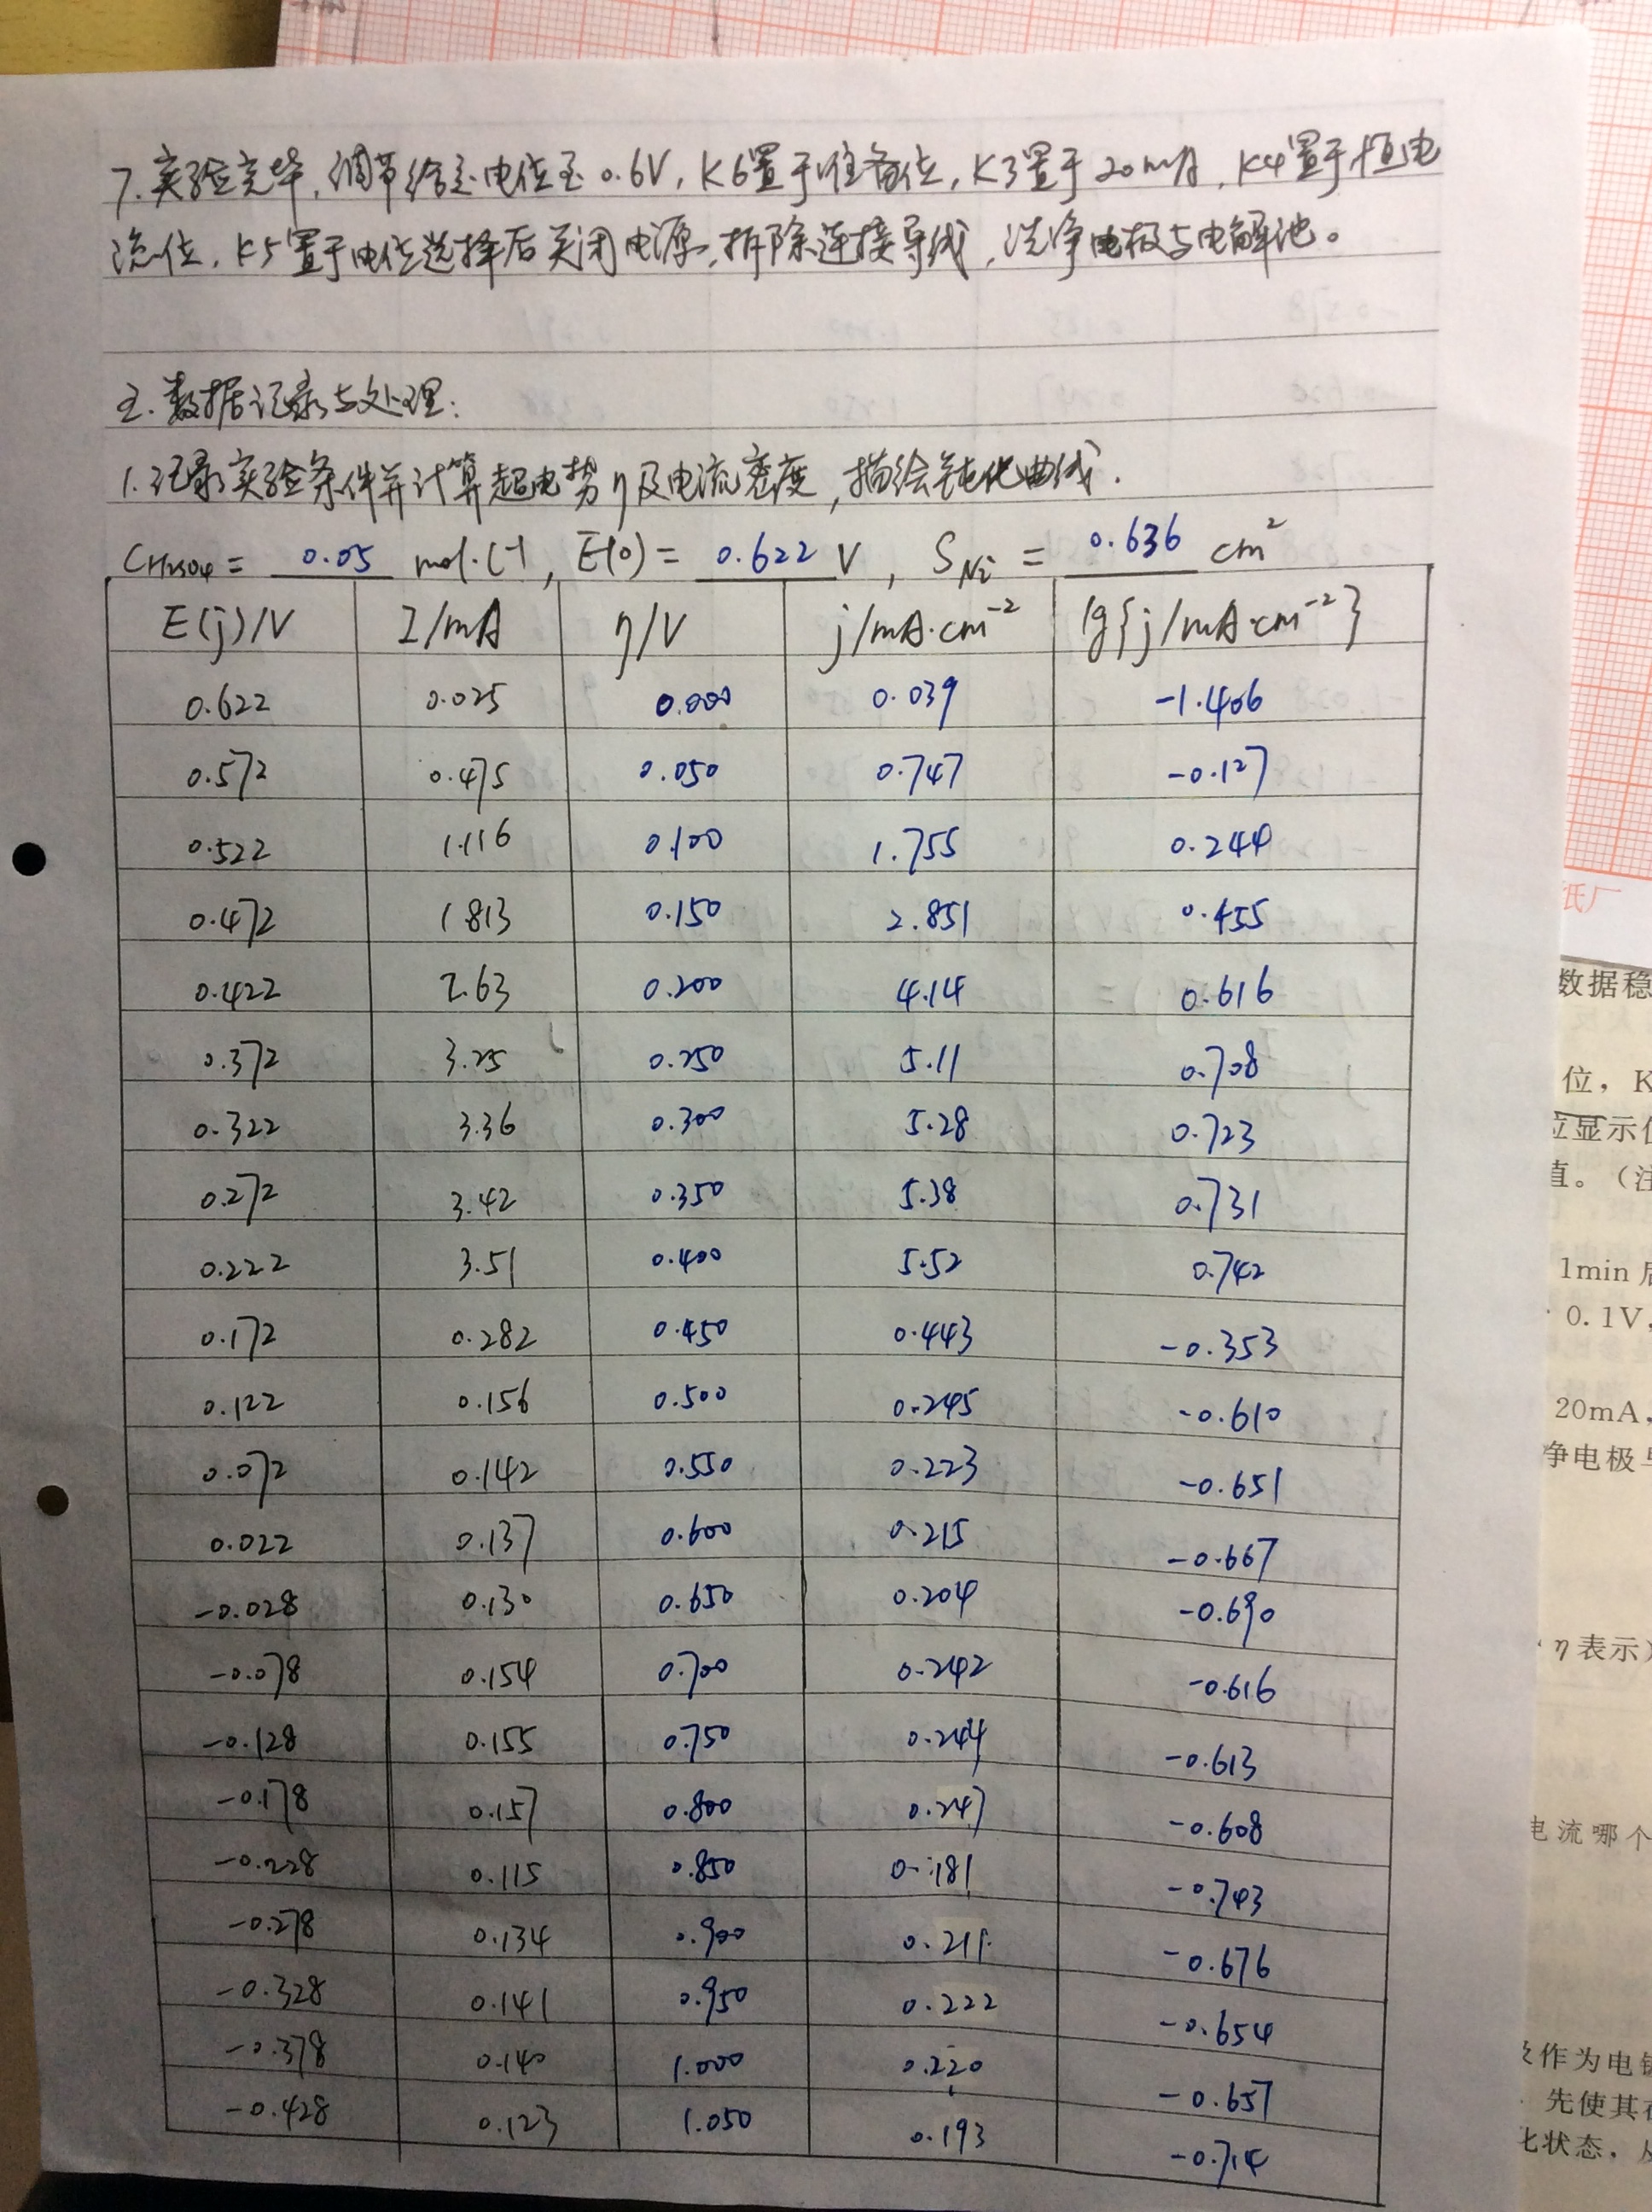 7.实验完毕,调节给定电位至0.6V,K6置于准备位,K3置于20mA,K4置于恒电
流位,K5置于电位选择后关闭电源,拆除连接导线,洗净电极与电解池。
五.数据记录与处理:
1.记录实验条件并计算超电势η及电流密度,描绘钝化曲线.
CH2SO4 = 0.05 mol·L-1, E(0) = 0.622 V, SNi = 0.636 cm²
E(j)/V I/mA η/V j/mA·cm⁻² lg{j/mA·cm⁻²}
0.622 0.025 0.000 0.039 -1.406
0.572 0.475 0.050 0.747 -0.127
0.522 1.116 0.100 1.755 0.244
0.472 1.813 0.150 2.851 0.455
0.422 2.63 0.200 4.14 0.616
0.372 3.25 0.250 5.11 0.708
0.322 3.36 0.300 5.28 0.723
0.272 3.42 0.350 5.38 0.731
0.222 3.51 0.400 5.52 0.742
0.172 0.282 0.450 0.443 -0.353
0.122 0.156 0.500 0.245 -0.610
0.072 0.142 0.550 0.223 -0.651
0.022 0.137 0.600 0.215 -0.667
-0.028 0.130 0.650 0.204 -0.690
-0.078 0.154 0.700 0.242 -0.616
-0.128 0.155 0.750 0.244 -0.613
-0.178 0.157 0.800 0.247 -0.608
-0.228 0.115 0.850 0.181 -0.743
-0.278 0.134 0.900 0.211 -0.676
-0.328 0.141 0.950 0.222 -0.654
-0.378 0.140 1.000 0.220 -0.657
-0.428 0.123 1.050 0.193 -0.714
纸厂
数据稳
位,K
应显示
值。(注
1min后
0.1V,
20mA,
净电极
η表示)
电流哪个
作为电
先使其
化状态,